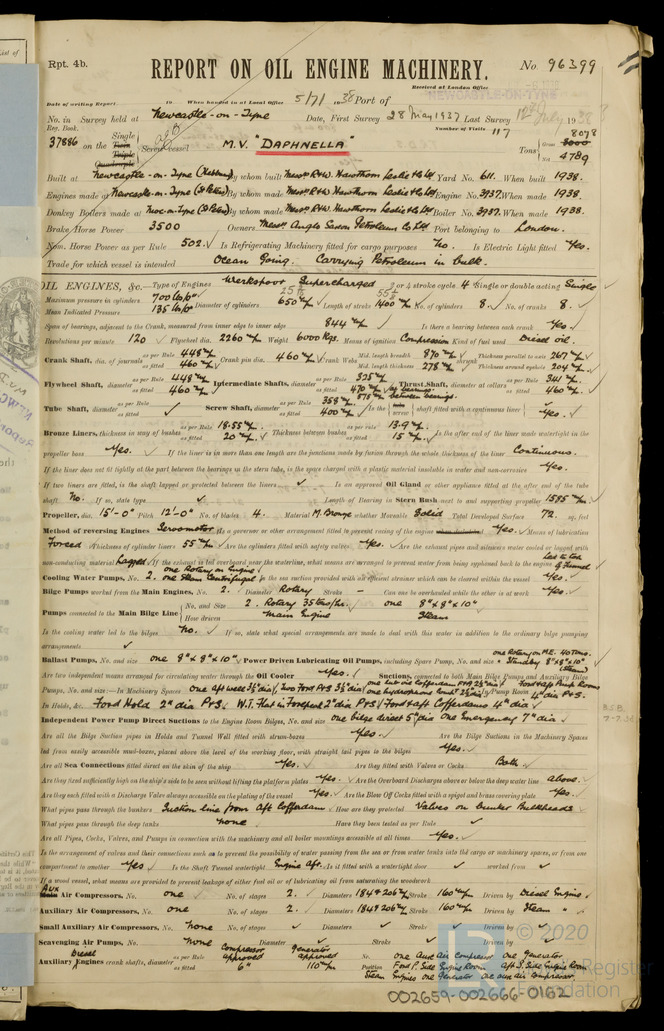 Rpt. 4b.
REPORT ON OIL ENGINE MACHINERY.
No 96399
Received at London Office
NEWCASTLE-ON-TYNE
Date of writing Report 19 When handed in at Local Office 5/7/1938 Port of
No. in Survey held at Newcastle-on-Tyne Date, First Survey 28 May 1937 Last Survey July 1938
Reg. Book. Number of Visits 117
37886 on the Single Triple Quadruple Screw vessel M.V. "DAPHNELLA" Tons Gross 8078 Net 4789
Built at Newcastle-on-Tyne (Hebburn) By whom built Messrs R&W. Hawthorn Leslie & Co Ltd Yard No. 611. When built 1938.
Engines made at Newcastle-on-Tyne (St Peters) By whom made Messrs R&W. Hawthorn Leslie & Co Ltd Engine No. 3937. When made 1938.
Donkey Boilers made at Newc-on-Tyne (St Peters) By whom made Messrs R&W. Hawthorn Leslie & Co Ltd Boiler No. 3937. When made 1938.
Brake Horse Power 3500 Owners Messrs Anglo Saxon Petroleum Co Ltd Port belonging to London.
Nom. Horse Power as per Rule 502. Is Refrigerating Machinery fitted for cargo purposes No. Is Electric Light fitted Yes.
Trade for which vessel is intended Ocean Going. Carrying Petroleum in bulk.
OIL ENGINES, &c.—Type of Engines Werkspoor Supercharged 2 or 4 stroke cycle 4 Single or double acting Single
Maximum pressure in cylinders 700 lb/□" Diameter of cylinders 650 m/m Length of stroke 1400 m/m No. of cylinders 8. No. of cranks 8.
Mean Indicated Pressure 135 lb/□"
Span of bearings, adjacent to the Crank, measured from inner edge to inner edge 844 m/m Is there a bearing between each crank Yes.
Revolutions per minute 120 Flywheel dia. 2260 m/m Weight 6000 Kgs. Means of ignition Compression Kind of fuel used Diesel oil.
Crank Shaft, dia. of journals as per Rule 448 m/m as fitted 460 m/m Crank pin dia. 460 m/m Crank Webs Mid. length breadth 870 m/m Mid. length thickness 278 m/m Thickness parallel to axis 267 m/m Thickness around eyehole 204 m/m
Flywheel Shaft, diameter as per Rule 448 m/m as fitted 460 m/m Intermediate Shafts, diameter as per Rule 325 m/m as fitted 470 m/m at bearings. 375 m/m between bearings. Thrust Shaft, diameter at collars as per Rule 341 m/m as fitted 460 m/m
Tube Shaft, diameter as per Rule as fitted Screw Shaft, diameter as per Rule 358 m/m as fitted 400 m/m Is the tube screw shaft fitted with a continuous liner Yes.
Bronze Liners, thickness in way of bushes as per Rule 18.55 m/m as fitted 20 m/m Thickness between bushes as per Rule 13.9 m/m as fitted 15 m/m Is the after end of the liner made watertight in the
propeller boss Yes. If the liner is in more than one length are the junctions made by fusion through the whole thickness of the liner Continuous.
If the liner does not fit tightly at the part between the bearings in the stern tube, is the space charged with a plastic material insoluble in water and non-corrosive Yes.
If two liners are fitted, is the shaft lapped or protected between the liners Is an approved Oil Gland or other appliance fitted at the after end of the tube
shaft No. If so, state type Length of Bearing in Stern Bush next to and supporting propeller 1585 m/m.
Propeller, dia. 15'-0" Pitch 12'-0" No. of blades 4. Material M. Bronze whether Moveable Solid Total Developed Surface 72. sq. feet
Method of reversing Engines Servomotor Is a governor or other arrangement fitted to prevent racing of the engine Yes. Means of lubrication
Forced Thickness of cylinder liners 55 m/m Are the cylinders fitted with safety valves Yes. Are the exhaust pipes and silencers water cooled or lagged with
non-conducting material Lagged If the exhaust is led overboard near the waterline, what means are arranged to prevent water from being syphoned back to the engine Led to top of Funnel
Cooling Water Pumps, No. 2. one Rotary on Engine, one Steam Centrifugal Is the sea suction provided with an efficient strainer which can be cleared within the vessel Yes.
Bilge Pumps worked from the Main Engines, No. 2. Diameter Rotary Stroke – Can one be overhauled while the other is at work Yes.
Pumps connected to the Main Bilge Line No. and Size 2. Rotary 35 tons/hr. one 8" x 8" x 10"
How driven Main Engine Steam
Is the cooling water led to the bilges No. If so, state what special arrangements are made to deal with this water in addition to the ordinary bilge pumping
arrangements
Ballast Pumps, No. and size one 8" x 8" x 10" Power Driven Lubricating Oil Pumps, including Spare Pump, No. and size one Rotary on M.E. 40 Tons. Standby 8" x 8" x 10" (Steam)
Are two independent means arranged for circulating water through the Oil Cooler Yes. Suctions, connected to both Main Bilge Pumps and Auxiliary Bilge
Pumps, No. and size:—In Machinery Spaces one aft well 3½ dia, Two Ford P&S 3½ dia, In Pump Room 4" dia P&S.
In Holds, &c. Ford Hold 2" dia P&S. W.T. Flat in Forepeak 2" dia P&S Ford & aft Cofferdams 4" dia
Independent Power Pump Direct Suctions to the Engine Room Bilges, No. and size one bilge direct 5" dia One Emergency 7" dia.
Are all the Bilge Suction pipes in Holds and Tunnel Well fitted with strum-boxes Yes. Are the Bilge Suctions in the Machinery Spaces
led from easily accessible mud-boxes, placed above the level of the working floor, with straight tail pipes to the bilges Yes.
Are all Sea Connections fitted direct on the skin of the ship Yes. Are they fitted with Valves or Cocks Both
Are they fixed sufficiently high on the ship's side to be seen without lifting the platform plates Yes. Are the Overboard Discharges above or below the deep water line above.
Are they each fitted with a Discharge Valve always accessible on the plating of the vessel Yes. Are the Blow Off Cocks fitted with a spigot and brass covering plate Yes.
What pipes pass through the bunkers Suction line from aft Cofferdam How are they protected Valves on bunker Bulkheads
What pipes pass through the deep tanks none Have they been tested as per Rule
Are all Pipes, Cocks, Valves, and Pumps in connection with the machinery and all boiler mountings accessible at all times Yes.
Is the arrangement of valves and their connections such as to prevent the possibility of water passing from the sea or from water tanks into the cargo or machinery spaces, or from one
compartment to another Yes Is the Shaft Tunnel watertight Engine Aft. Is it fitted with a watertight door worked from
If a wood vessel, what means are provided to prevent leakage of either fuel oil or of lubricating oil from saturating the woodwork
Aux Main Air Compressors, No. one No. of stages 2. Diameters 184 & 206 m/m Stroke 160 m/m Driven by Diesel Engine.
Auxiliary Air Compressors, No. one No. of stages 2. Diameters 184 & 206 m/m Stroke 160 m/m Driven by Steam "
Small Auxiliary Air Compressors, No. none No. of stages Diameters Stroke Driven by
Scavenging Air Pumps, No. none Diameter Stroke Driven by
Diesel Auxiliary Engines crank shafts, diameter as per Rule Compressor approved Generator approved as fitted 6" 110 m/m No. one Aux Air Compressor one Generator
Position Ford P. Side Engine Room aft S. Side Engine Room
Steam Engines one Generator one aux air compressor.
© 2020
Lloyd's Register
Foundation
002659-002666-0162